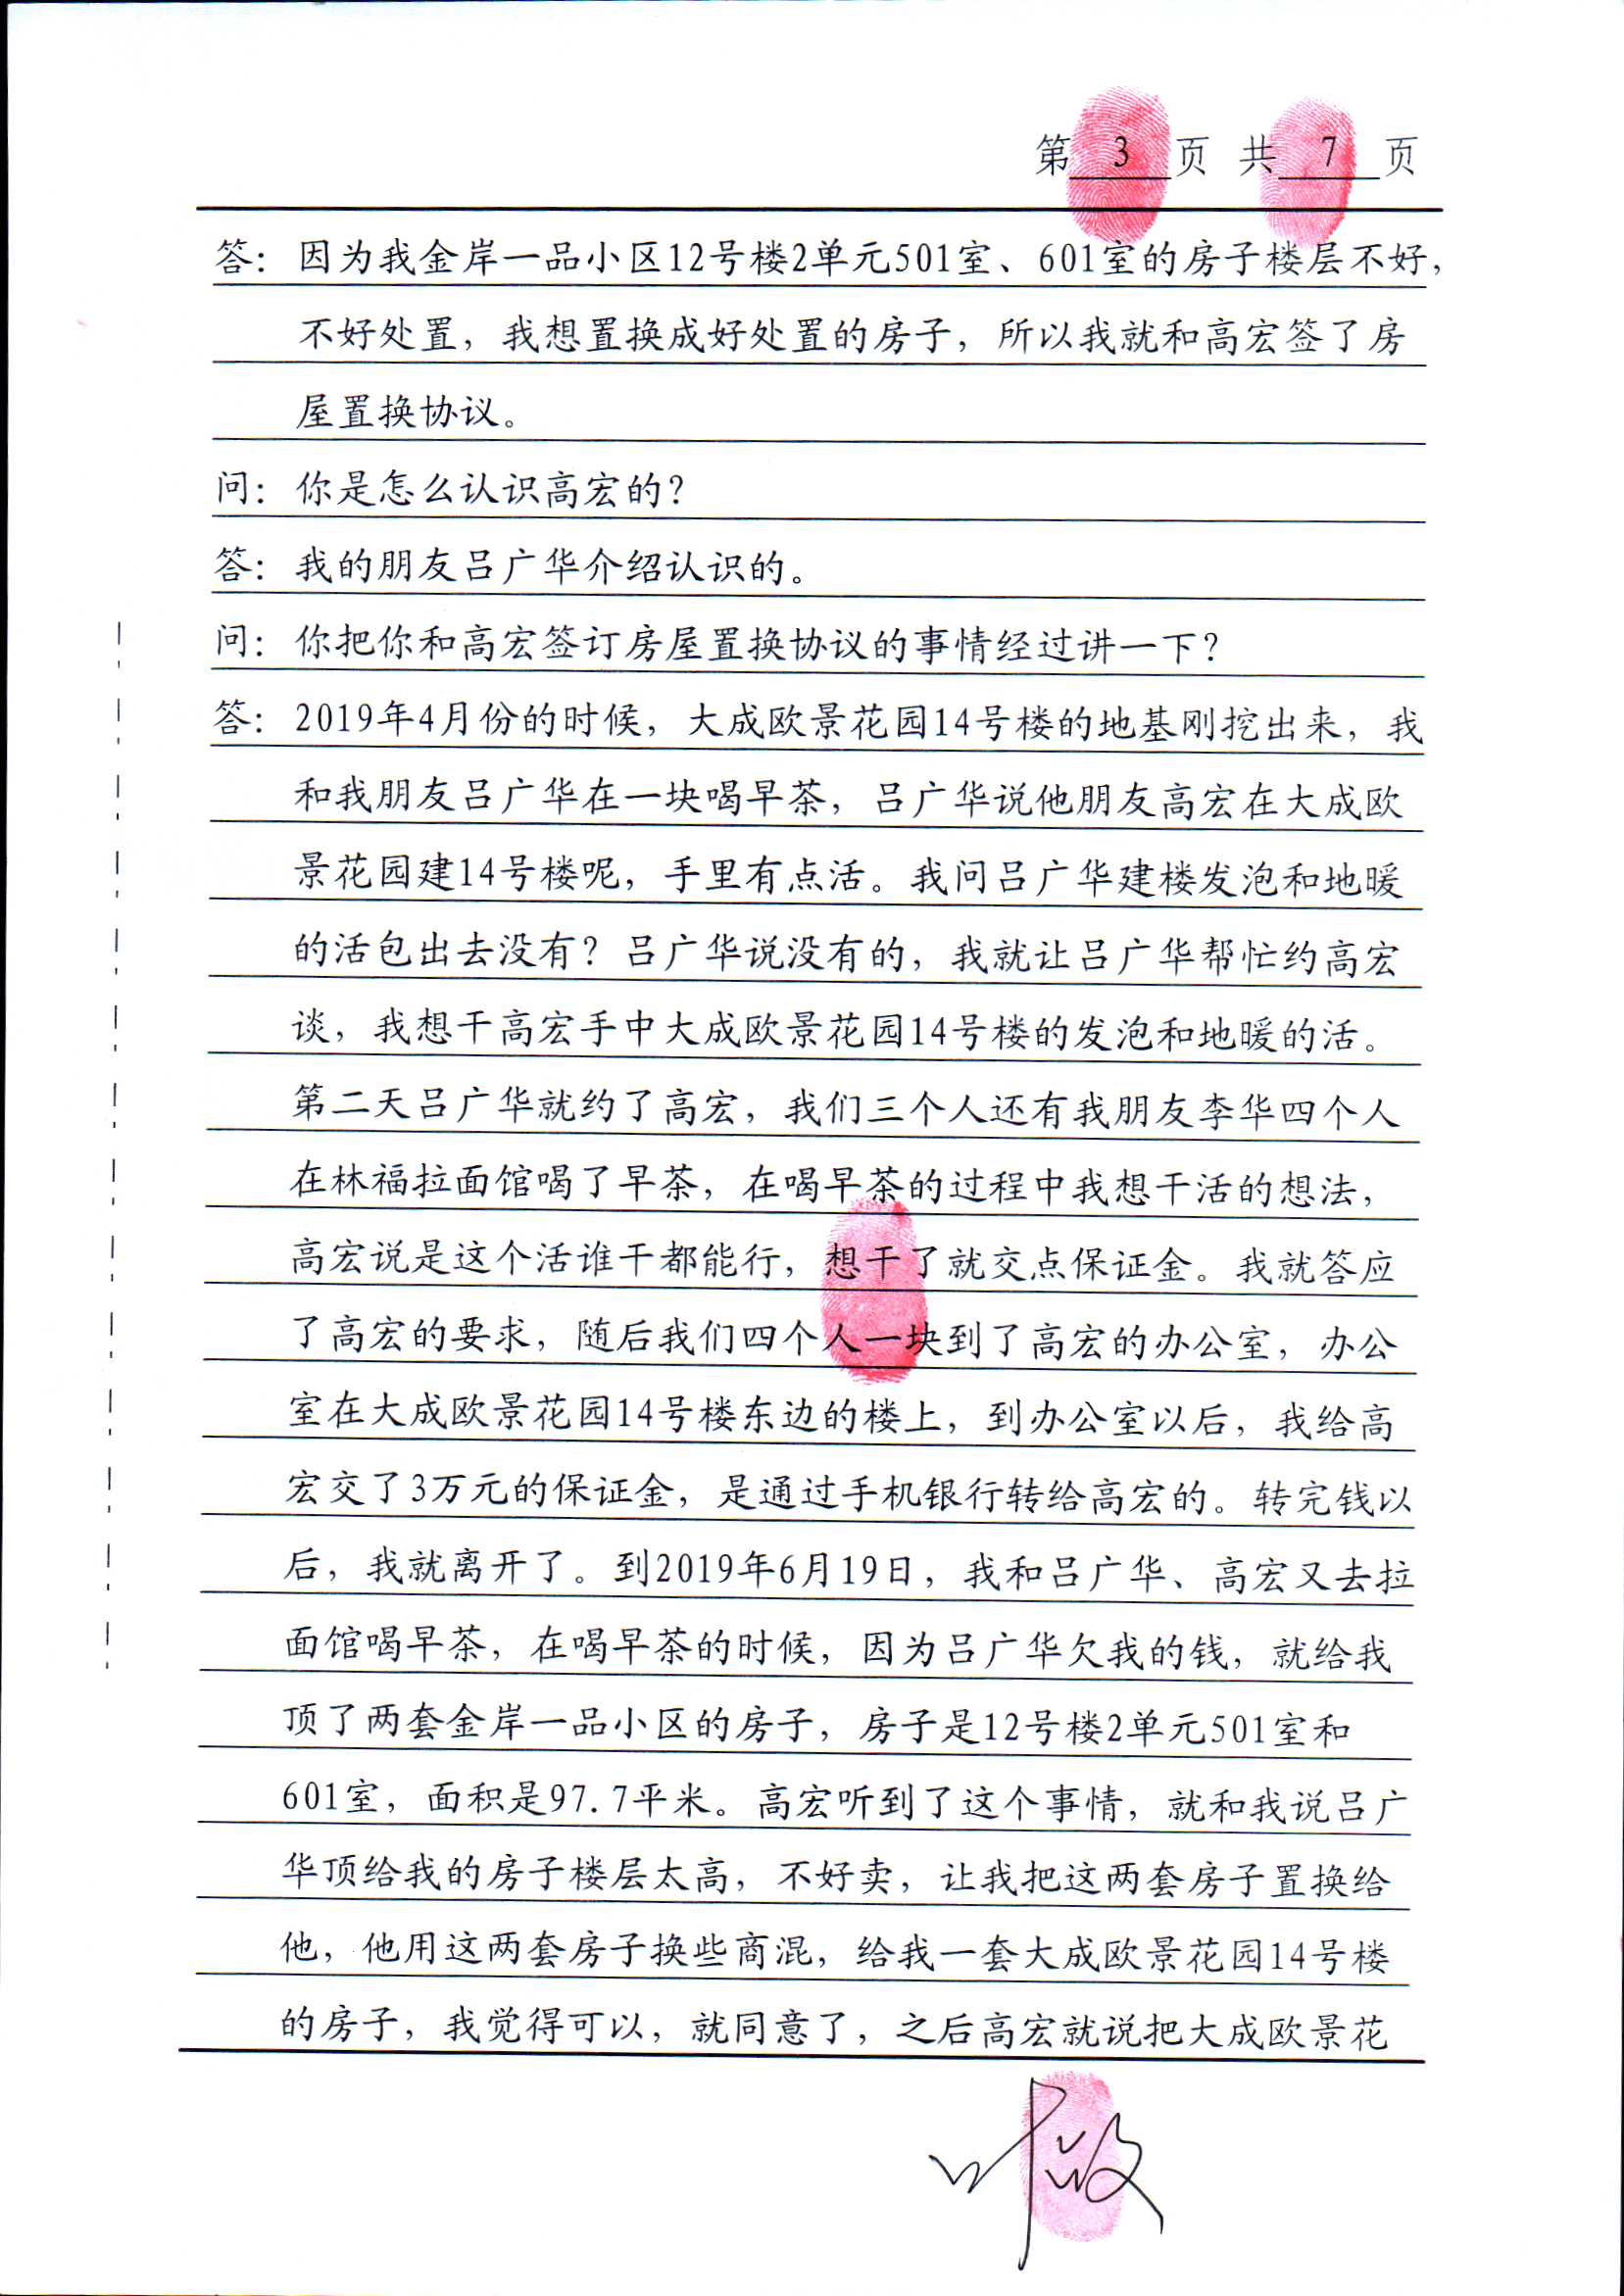 第3页 共7页
答：因为我金岸一品小区12号楼2单元501室、601室的房子楼层不好，
不好处置，我想置换成好处置的房子，所以我就和高宏签了房
屋置换协议。
问：你是怎么认识高宏的？
答：我的朋友吕广华介绍认识的。
问：你把你和高宏签订房屋置换协议的事情经过讲一下？
答：2019年4月份的时候，大成欧景花园14号楼的地基刚挖出来，我
和我朋友吕广华在一块喝早茶，吕广华说他朋友高宏在大成欧
景花园建14号楼呢，手里有点活。我问吕广华建楼发泡和地暖
的活包出去没有？吕广华说没有的，我就让吕广华帮忙约高宏
谈，我想干高宏手中大成欧景花园14号楼的发泡和地暖的活。
第二天吕广华就约了高宏，我们三个人还有我朋友李华四个人
在林福拉面馆喝了早茶，在喝早茶的过程中我想干活的想法，
高宏说是这个活谁干都能行，想干了就交点保证金。我就答应
了高宏的要求，随后我们四个人一块到了高宏的办公室，办公
室在大成欧景花园14号楼东边的楼上，到办公室以后，我给高
宏交了3万元的保证金，是通过手机银行转给高宏的。转完钱以
后，我就离开了。到2019年6月19日，我和吕广华、高宏又去拉
面馆喝早茶，在喝早茶的时候，因为吕广华欠我的钱，就给我
顶了两套金岸一品小区的房子，房子是12号楼2单元501室和
601室，面积是97.7平米。高宏听到了这个事情，就和我说吕广
华顶给我的房子楼层太高，不好卖，让我把这两套房子置换给
他，他用这两套房子换些商混，给我一套大成欧景花园14号楼
的房子，我觉得可以，就同意了，之后高宏就说把大成欧景花